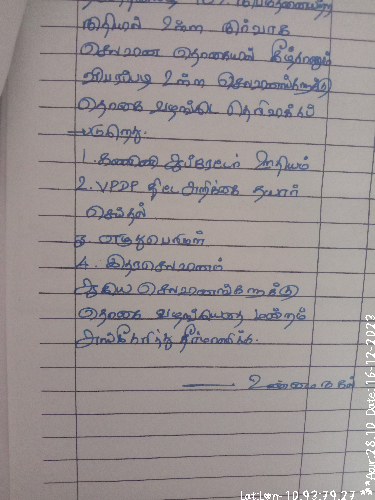 நிதியில் உள்ள நிர்வாக
செலவின தொகையில் கீழ்காணும்
விபரப்படி உள்ள செலவினங்களுக்கு
தொகை வழங்கிட தெரிவிக்கப்
படுகிறது.
1. கணினி ஆப்ரேட்டர் ஊதியம்
2. VPDP திட்ட அறிக்கை தயார்
செய்தல்
3. எழுதுபொருள்
4. இதரசெலவினம்
ஆகிய செலவினங்களுக்கு
தொகை வழங்கியதை மன்றம்
அங்கீகரித்து தீர்மானிக்க.
உண்மை நகல்
Lat:Lon-10.93:79.27
Date:16-12-2023